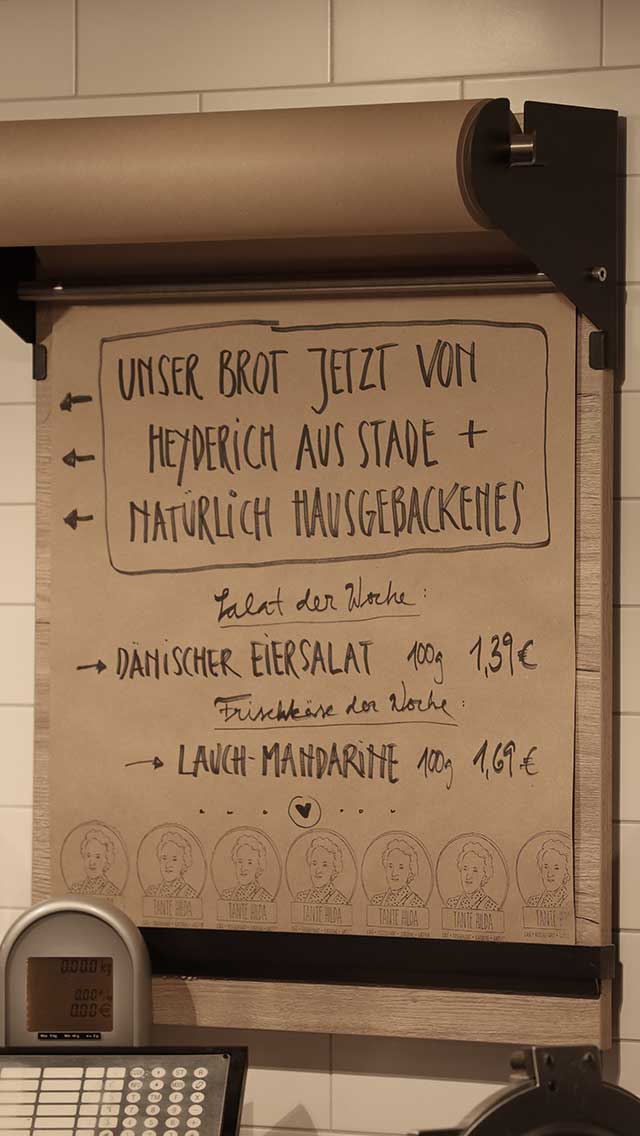 UNSER BROT JETZT VON
HEYDERICH AUS STADE +
NATÜRLICH HAUSGEBACKENES
Salat der Woche:
→ DÄNISCHER EIERSALAT 100g 1,39 €
Frischkäse der Woche:
→ LAUCH-MANDARINE 100g 1,69 €
TANTE HILDA TANTE HILDA TANTE HILDA TANTE HILDA TANTE HILDA TANTE
0.000 kg
0.00
0.00 €